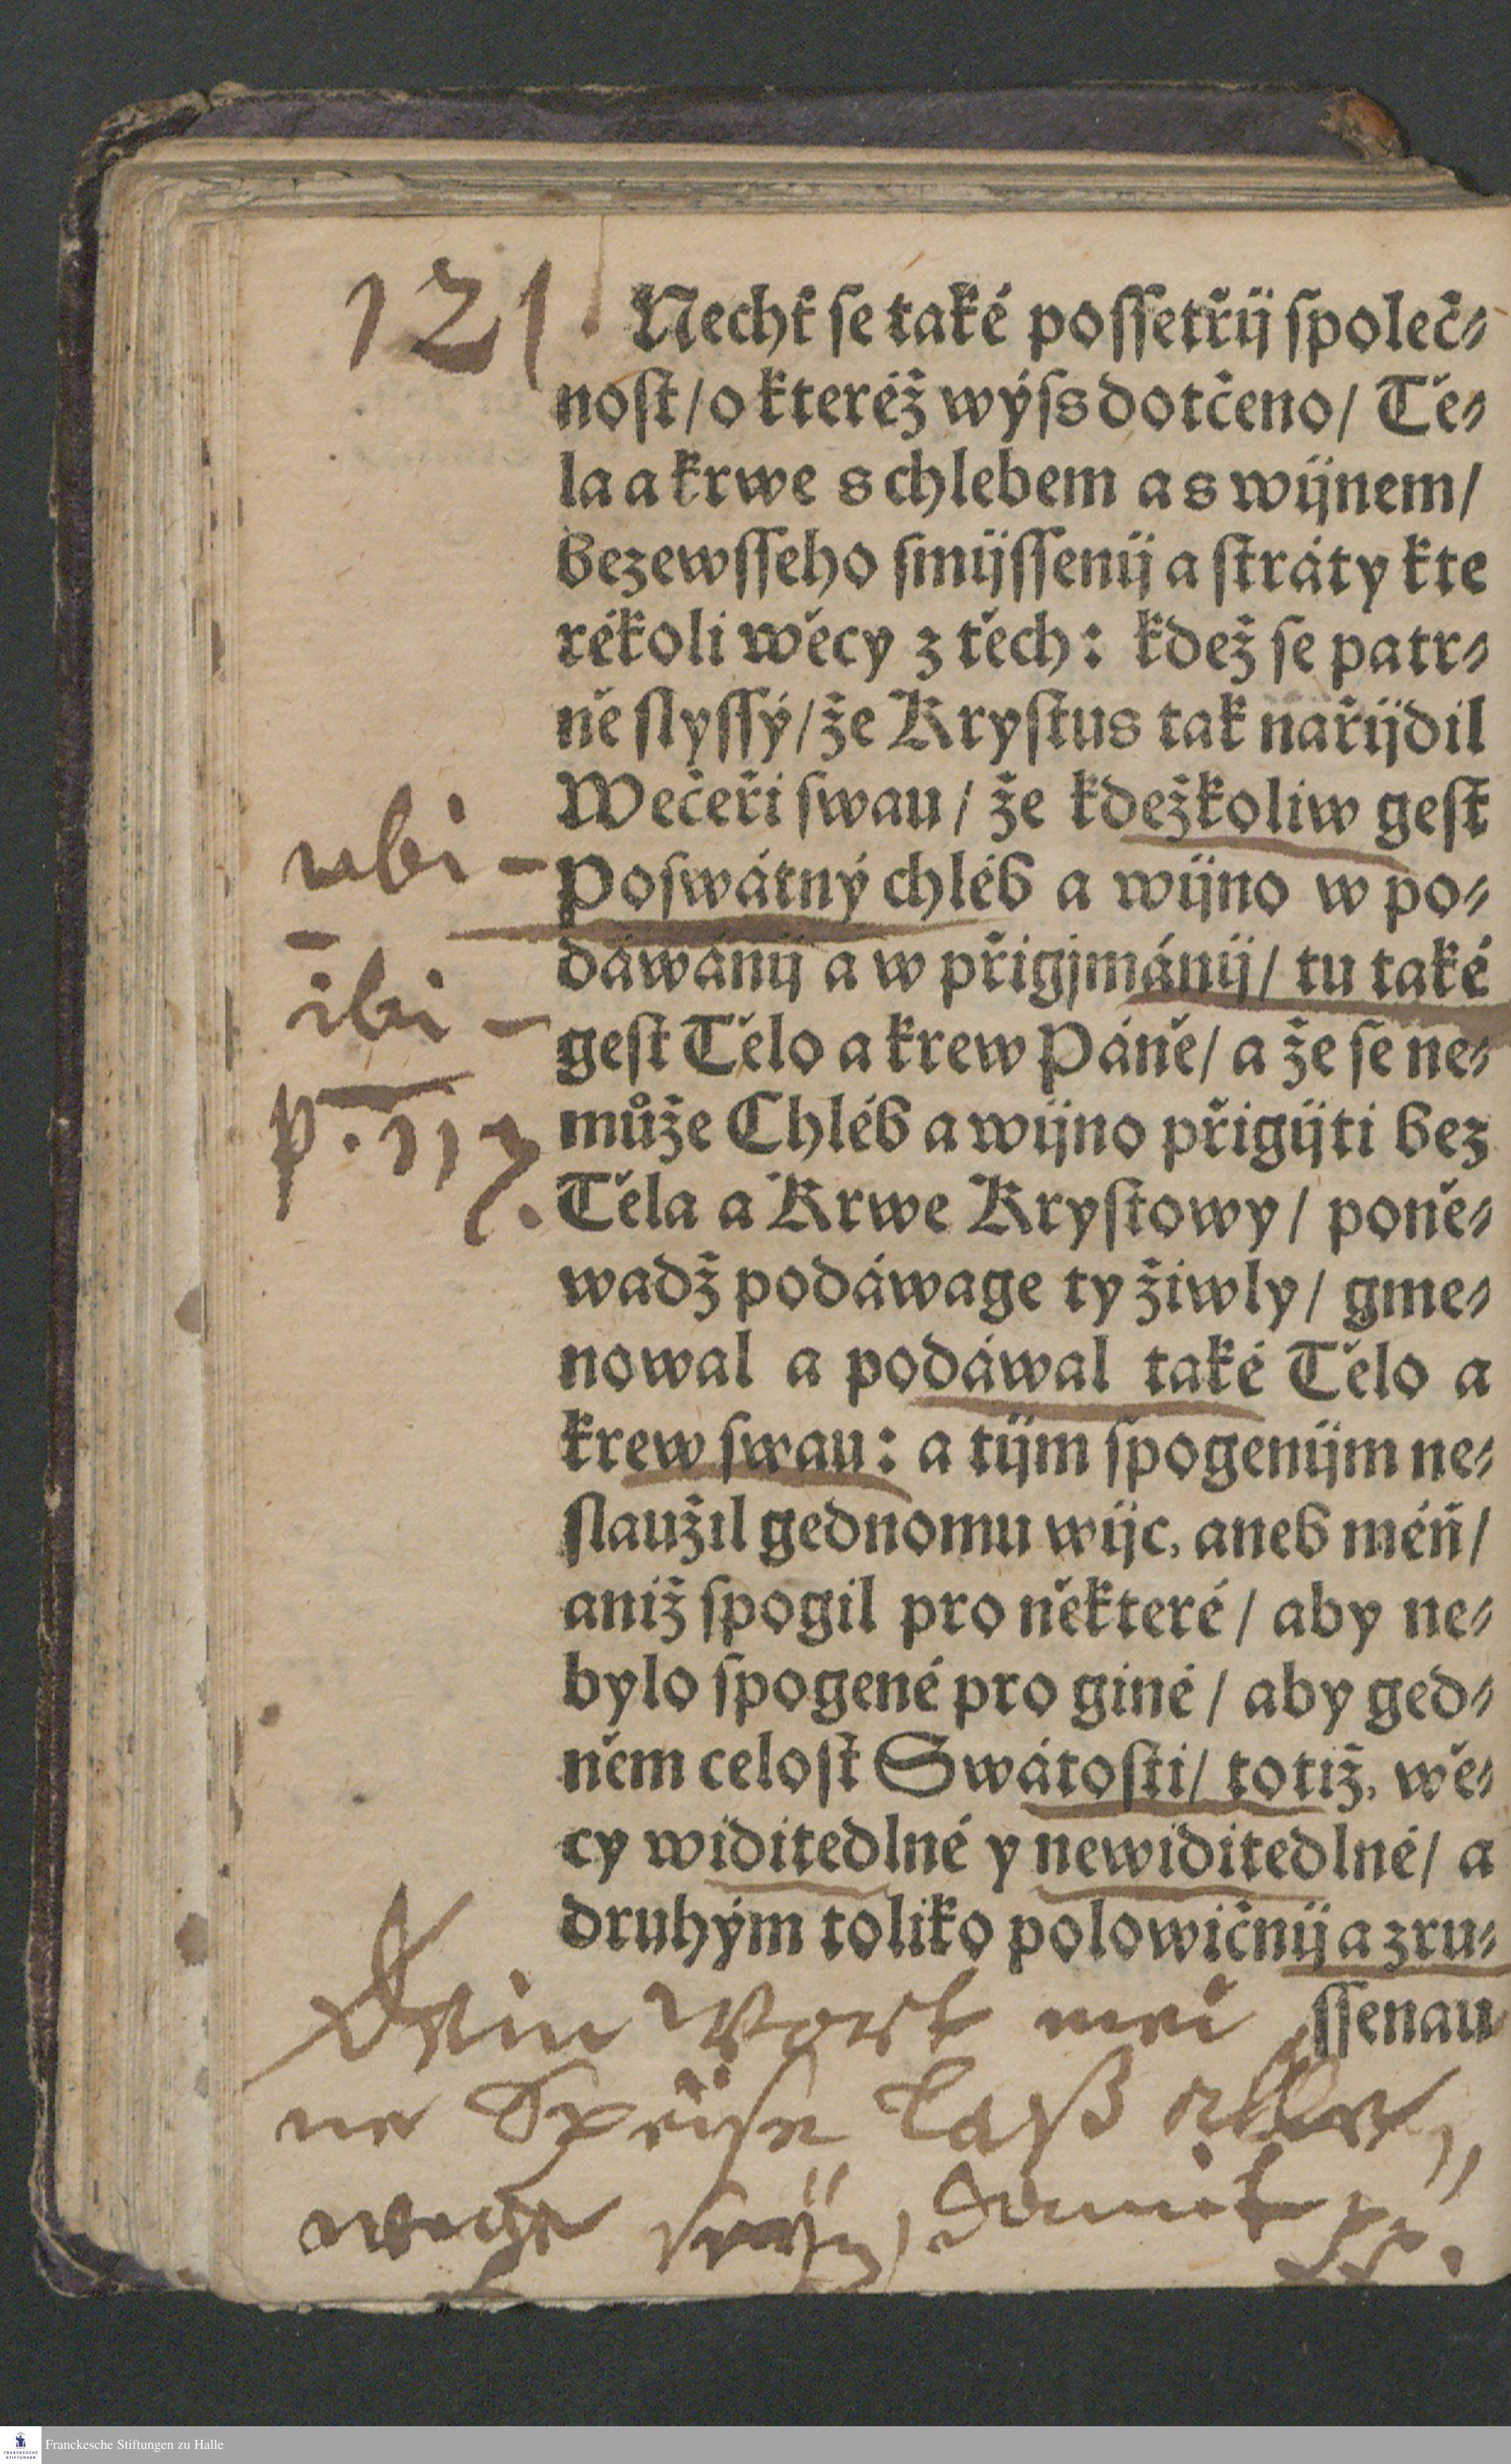 121.
Nechť se také possetřij společ⸗
nost/ o kteréž wýss dotčeno/ Tě⸗
la a krwe s chlebem a s wijnem/
bezewsseho smijssenij a stráty kte
rékoli wěcy z těch: kdež se patr⸗
ně slyssý/ že Krystus tak nařijdil
Wečeři swau/ že kdežkoliw gest
ubi –
Poswátný chléb a wijno w po⸗
dáwánij a w přigjmánij/ tu také
ibi –
gest Tělo a krew Páně/ a že se ne⸗
p. 117.
může Chléb a wijno přigijti bez
Těla a Krwe Krystowy/ poně⸗
wadž podáwage ty žiwly/ gme⸗
nowal a podáwal také Tělo a
krew swau: a tijm spogenijm ne⸗
slaužil gednomu wijc, aneb méň/
aniž spogil pro některé/ aby ne⸗
bylo spogené pro giné/ aby ged⸗
něm celost Swátosti/ totiž, wě⸗
cy widitedlné y newiditedlné/ a
druhým toliko polowičnij a zru⸗
ssenau
Dein Wort mei
ne Speise laß aller
wege seyn, damit
Franckesche Stiftungen zu Halle